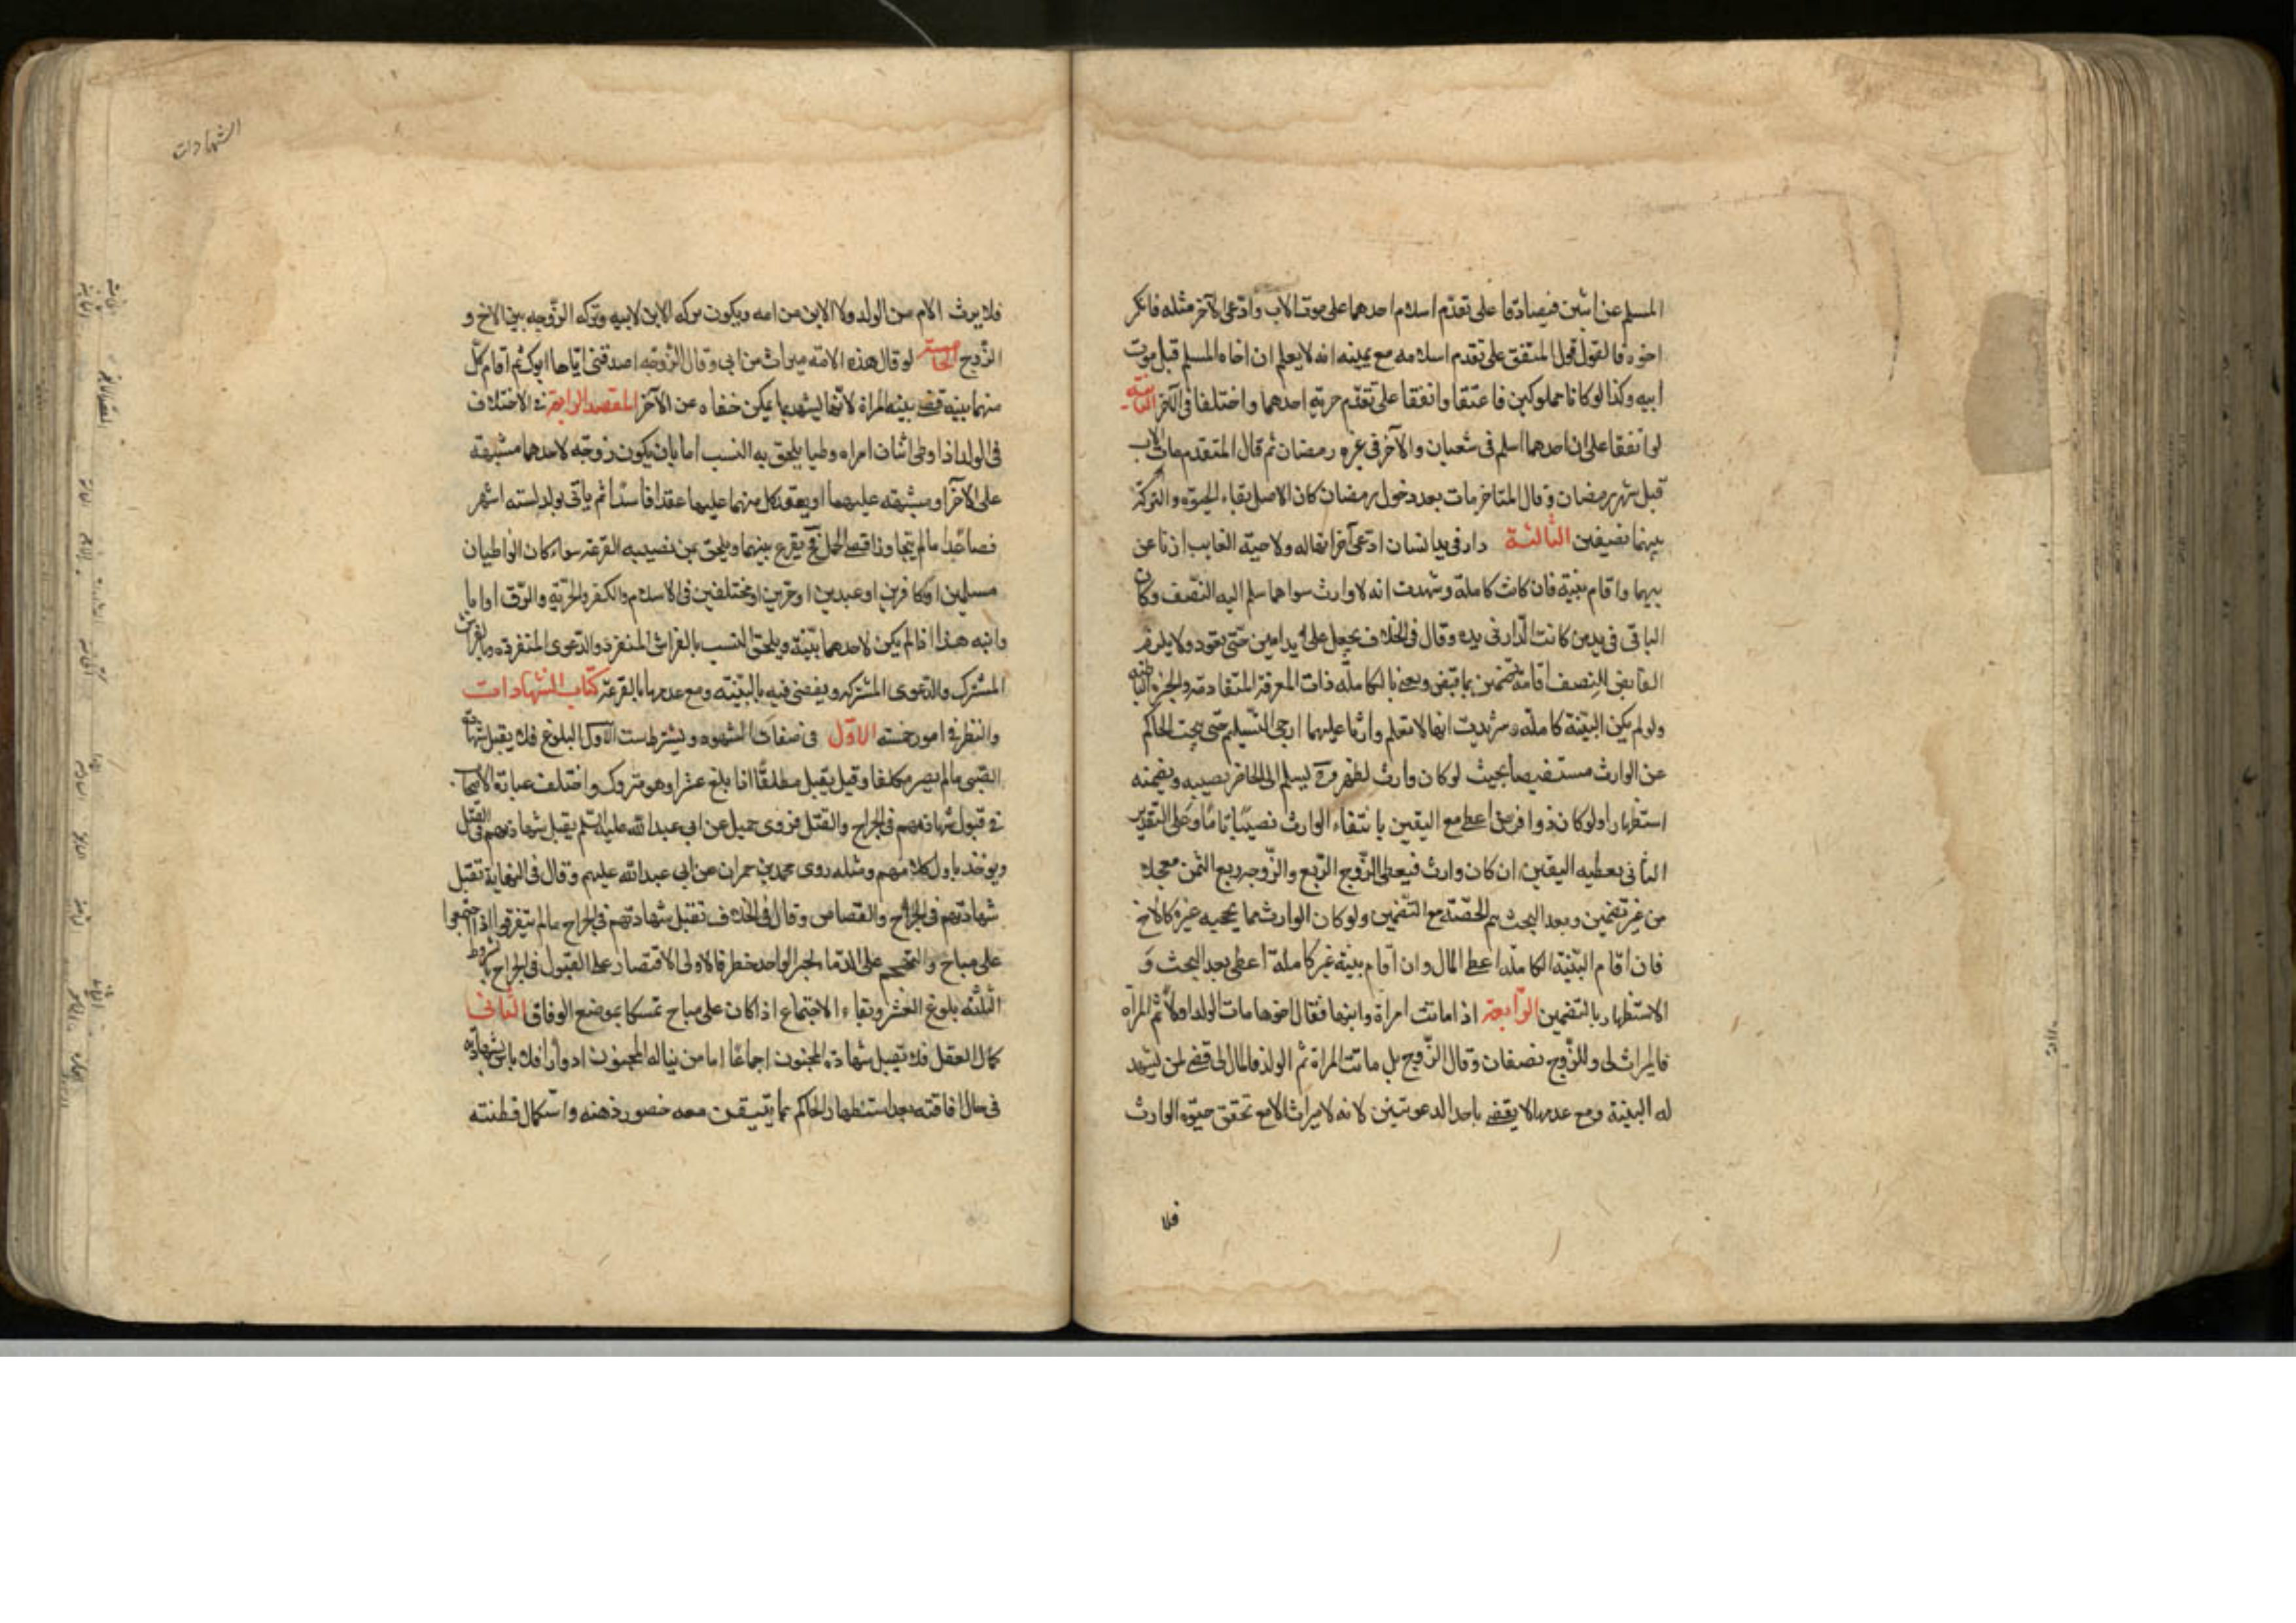 المسلم عن اثنين فيصادقا على تقدم اسلام احدهما على موت الاب وادعى الآخر مثله فانكر
اخوه فالقول قول المتفق على تقدم اسلامه مع يمينه انه لا يعلم ان اخاه المسلم قبل موت
ابيه وكذا لو كانا مملوكين فاعتقا واتفقا على تقدم حرية احدهما واختلفا فى الآخر الثانية
لو اتفقا على ان احدهما اسلم فى شعبان والآخر فى غره رمضان ثم قال المتقدم مات الاب
قبل شهر رمضان وقال المتاخر مات بعد دخول رمضان كان الاصل بقاء الحيوه والتركة
بينهما نصيفين الثالثة دار فى يد انسان ادعى آخر انها له ولاخيه الغايب ارثا عن
بيهما واقام بينة فان كانت كاملة وشهدت انه لا وارث سواهما سلم اليه النصف وكان
الباقى فى يد من كانت الدار فى يده وقال فى الخلاف يجعل على يد امين حتى يعود ولا يلزم
القابض للنصف اقامة تضمين بما قبض ونعنى بالكاملة ذات المعرفة المتقادمة والخبرة الباطنه
ولو لم يكن البينة كاملة وشهدت انها لا تعلم وارثا عليهما ارجى التسليم حتى يبحث الحاكم
عن الوارث مستقصيا بحيث لو كان وارث لظهر وح يسلم الى الحاضر نصيبه ويضمنه
استظهارا ولو كان ذوا فرض اعطى مع اليقين بانتفاء الوارث نصيبًا تامًا وعلى التقدير
الثانى يعطيه اليقين ان كان وارث فيعطى الزوج الربع والزوجه ربع الثمن معجلا
من غير تضمين وبعد البحث يتم الحصته مع التضمين ولو كان الوارث مما يحجبه غيره كالاخ
فان اقام البينة الكاملة اعطى المال وان اقام بينة غير كاملة اعطى بعد البحث و
الاستظهار بالتضمين الرابعة اذا ماتت امراة وابنها فقال اخوها مات الولد اولا ثم المرأه
فالميراث لى وللزوج نصفان وقال الزوج بل ماتت المراة ثم الولد فالمال لى قضى لمن تشهد
له البينة ومع عدمها لا يقضى باحد الدعويين لانه لا ميراث الا مع تحقق حيوة الوارث
فلا
الشهادات
فلا يرث الام من الولد ولا الابن من امه ويكون تركه الابن لابيه وتركه الزوجه بين الاخ و
الزوج الخامسة لو قال هذه الامة ميراث من ابى وقال الزوجه اصدقنى اياها ابوك ثم اقام كل
منهما بينه قضى ببينه المراة لانها تشهد بما يمكن خفاه عن الآخر المقصد الرابع فى الاختلاف
فى الولد اذا وطى اثنان امراه وطيا يلحق به النسب اما بان يكون زوجه لاحدهما مشبهة
على الآخر او مشبهه عليهما او يعقد كل منهما عليها عقدا فاسدًا ثم ياتى بولد لسته اشهر
فصاعدا ما لم يتجاوز اقصى الحمل فح يقرع بينهما ويلحق بمن نصيبه القرعة سواء كان الواطيان
مسلمين او كافرين او عبدين او حرين او مختلفين فى الاسلام والكفر والحرية والرق او ابا
وابنه هذا اذا لم يكن لاحدهما بينة ويلحق النسب بالفراش المنفرد والدعوى المنفرده وبالفراش
المشترك والدعوى المشتركه ويقضى فيه بالبينة ومع عدمها بالقرعة كتاب الشهادات
والنظر فى امور خمسه الاول فى صفات الشهود ويشترط ست الاول البلوغ فلا يقبل شهادة
الصبى ما لم يصر مكلفا وقيل يقبل مطلقًا اذا بلغ عشرا وهو متروك واختلفت عبارة الاصحاب
فى قبول شهادتهم فى الجراح والقتل فروى جميل عن ابى عبد الله عليه السلم يقبل شهادتهم فى القتل
ويوخذ باول كلامهم ومثله روى محمد بن حمران عن ابى عبد الله عليهم وقال فى النهاية تقبل
شهادتهم فى الجراح والقصاص وقال فى الخلاف تقبل شهادتهم فى الجراح ما لم يتفرقوا اذا اجتمعوا
على مباح والتهجم على الدما بخبر الواحد خطر فالاولى الاقتصار على القبول فى الجراح بالشروط
الثلثه بلوغ العشر وبقاء الاجتماع اذا كان على مباح تمسكا بموضع الوفاق الثانى
كمال العقل فلا تقبل شهادة المجنون اجماعًا اما من يناله المجنون ادوارا فلا باس بشهادته
فى حال افاقته بعد استظهار الحاكم بما يتيقن معه حضور ذهنه واستكمال فطنته